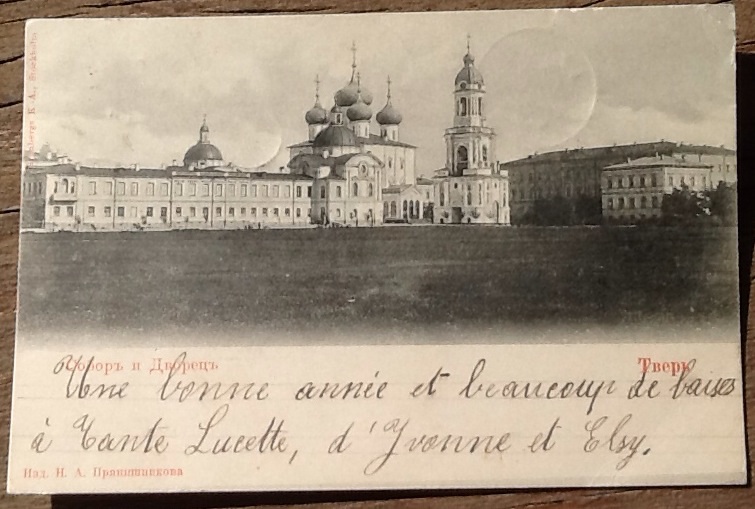 K. A., Stockholm
Соборъ и Дворецъ
Тверь
Une bonne année et beaucoup de baises
à Tante Lucette, d'Yvonne et Elsy.
Изд. Н. А. Пранишникова